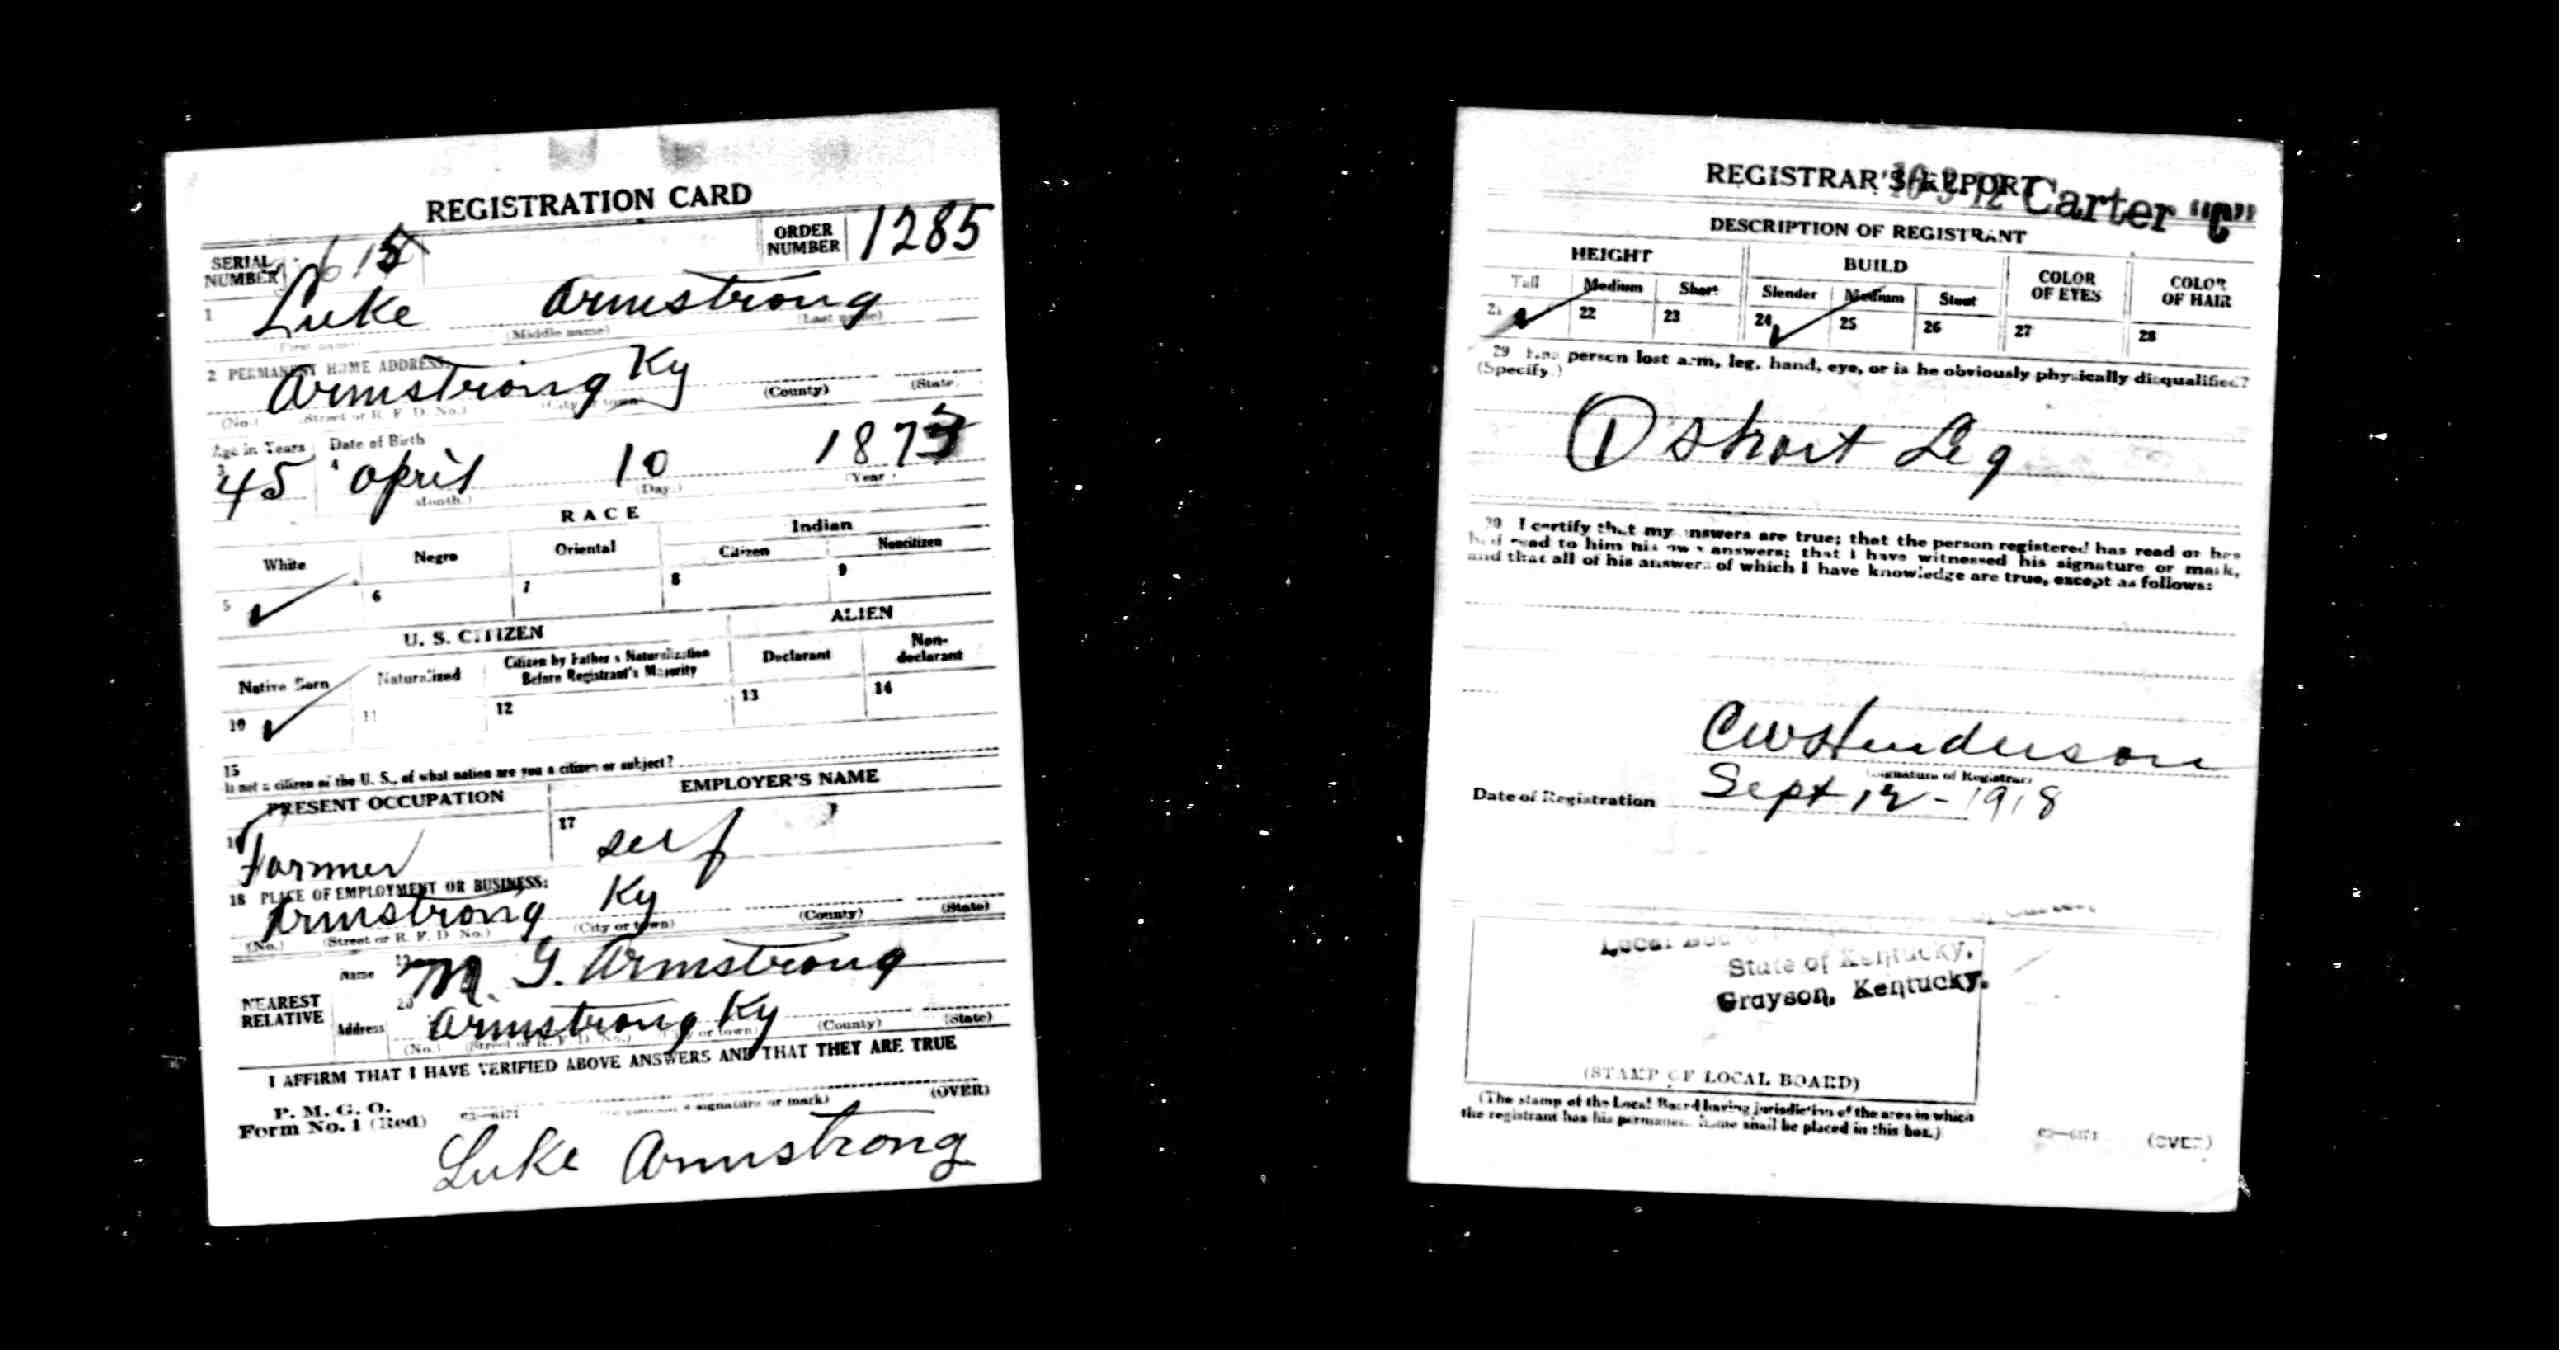 REGISTRATION CARD
SERIAL NUMBER 615 ORDER NUMBER 1285
1 Luke Armstrong
(First name) (Middle name) (Last name)
2 PERMANENT HOME ADDRESS:
Armstrong Ky
(No.) (Street or R. F. D. No.) (City or town) (County) (State)
Age in Years Date of Birth
3 45 4 April 10 1873
(Month.) (Day.) (Year.)
RACE
White Negro Oriental Indian
Citizen Noncitizen
5 ✓ 6 7 8 9
U. S. CITIZEN ALIEN
Native Born Naturalized Citizen by Father's Naturalization Before Registrant's Majority Declarant Non-declarant
10 ✓ 11 12 13 14
15
If not a citizen of the U. S., of what nation are you a citizen or subject?
PRESENT OCCUPATION EMPLOYER'S NAME
16 Farmer 17 self
18 PLACE OF EMPLOYMENT OR BUSINESS:
Armstrong Ky
(No.) (Street or R. F. D. No.) (City or town) (County) (State)
NEAREST RELATIVE
Name 19 M. G. Armstrong
Address 20 Armstrong Ky
(No.) (Street or R. F. D. No.) (City or town) (County) (State)
I AFFIRM THAT I HAVE VERIFIED ABOVE ANSWERS AND THAT THEY ARE TRUE
P. M. G. O.
Form No. 1 (Red) 03—6171 signature or mark) (OVER)
Luke Armstrong
REGISTRAR'S REPORT Carter "C"
DESCRIPTION OF REGISTRANT
HEIGHT BUILD COLOR OF EYES COLOR OF HAIR
Tall Medium Short Slender Medium Stout
21 ✓ 22 23 24 ✓ 25 26 27 28
29 Has person lost arm, leg, hand, eye, or is he obviously physically disqualified?
(Specify.)
① short Leg
30 I certify that my answers are true; that the person registered has read or has
had read to him his own answers; that I have witnessed his signature or mark,
and that all of his answers of which I have knowledge are true, except as follows:
CW Henderson
(Signature of Registrar)
Date of Registration Sept 12 - 1918
Local Board
State of Kentucky.
Grayson, Kentucky.
(STAMP OF LOCAL BOARD)
(The stamp of the Local Board having jurisdiction of the area in which
the registrant has his permanent home shall be placed in this box.)
03—6171 (OVER)